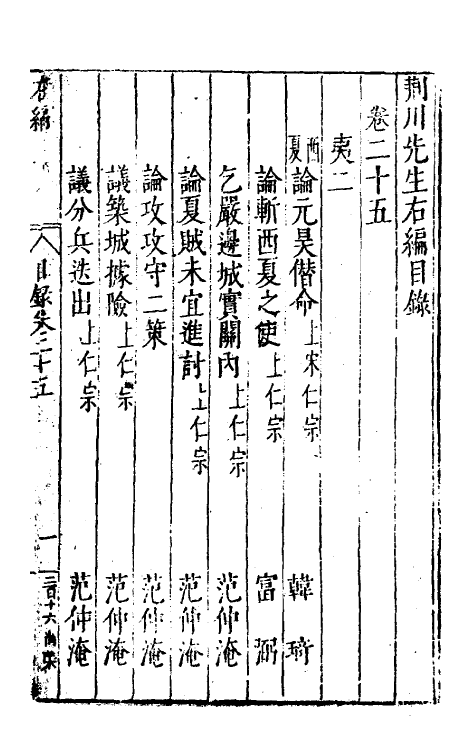 荆川先生右編目錄
卷二十五
夷二
西夏論元昊僭命 上宋仁宗 韓琦
論斬西夏之使 上仁宗 富弼
乞嚴邊城實關內 上仁宗 范仲淹
論夏賊未宜進討 上仁宗 范仲淹
論攻攻守二策 范仲淹
議築城據險 上仁宗 范仲淹
議分兵迭出 上仁宗 范仲淹
右編 目錄卷二十五 一